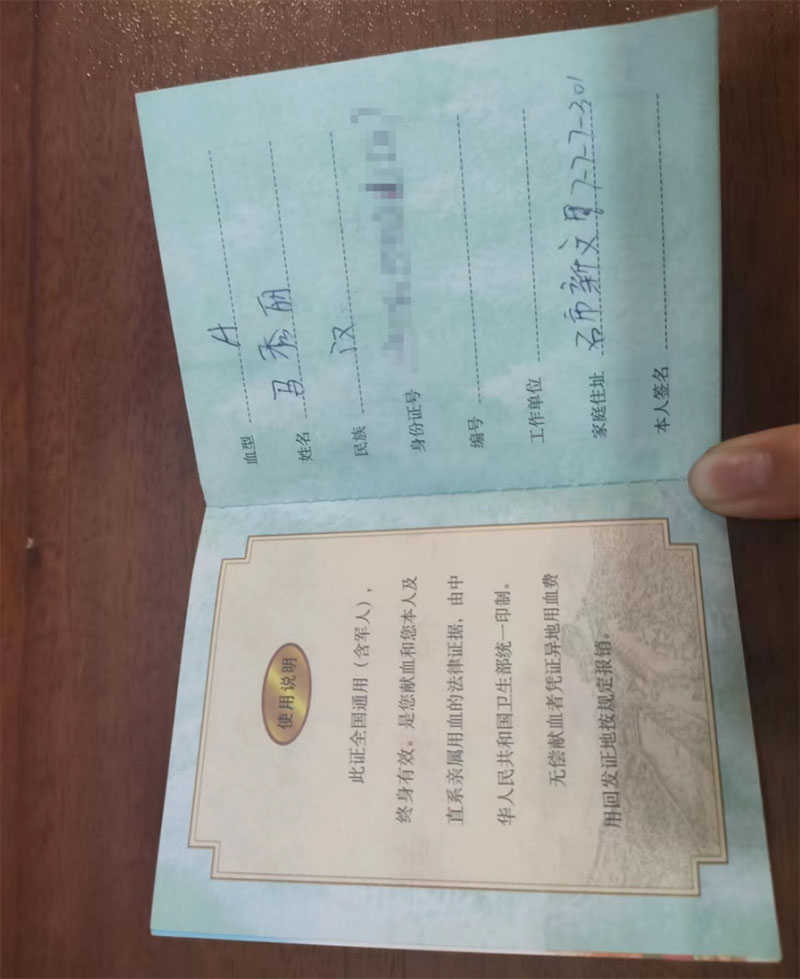 使用说明
此证全国通用（含军人），
终身有效。是您献血和您本人及
直系亲属用血的法律证据，由中
华人民共和国卫生部统一印制。
无偿献血者凭证异地用血费
用回发证地按规定报销。
血型 A
姓名 马秀丽
民族 汉
身份证号
编号
工作单位
家庭住址 石市新文月7-7-7-301
本人签名